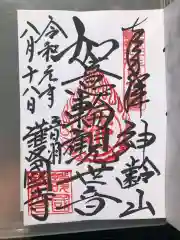 神齢山
如意輪観世音
護國寺
令和元年
八月十八日